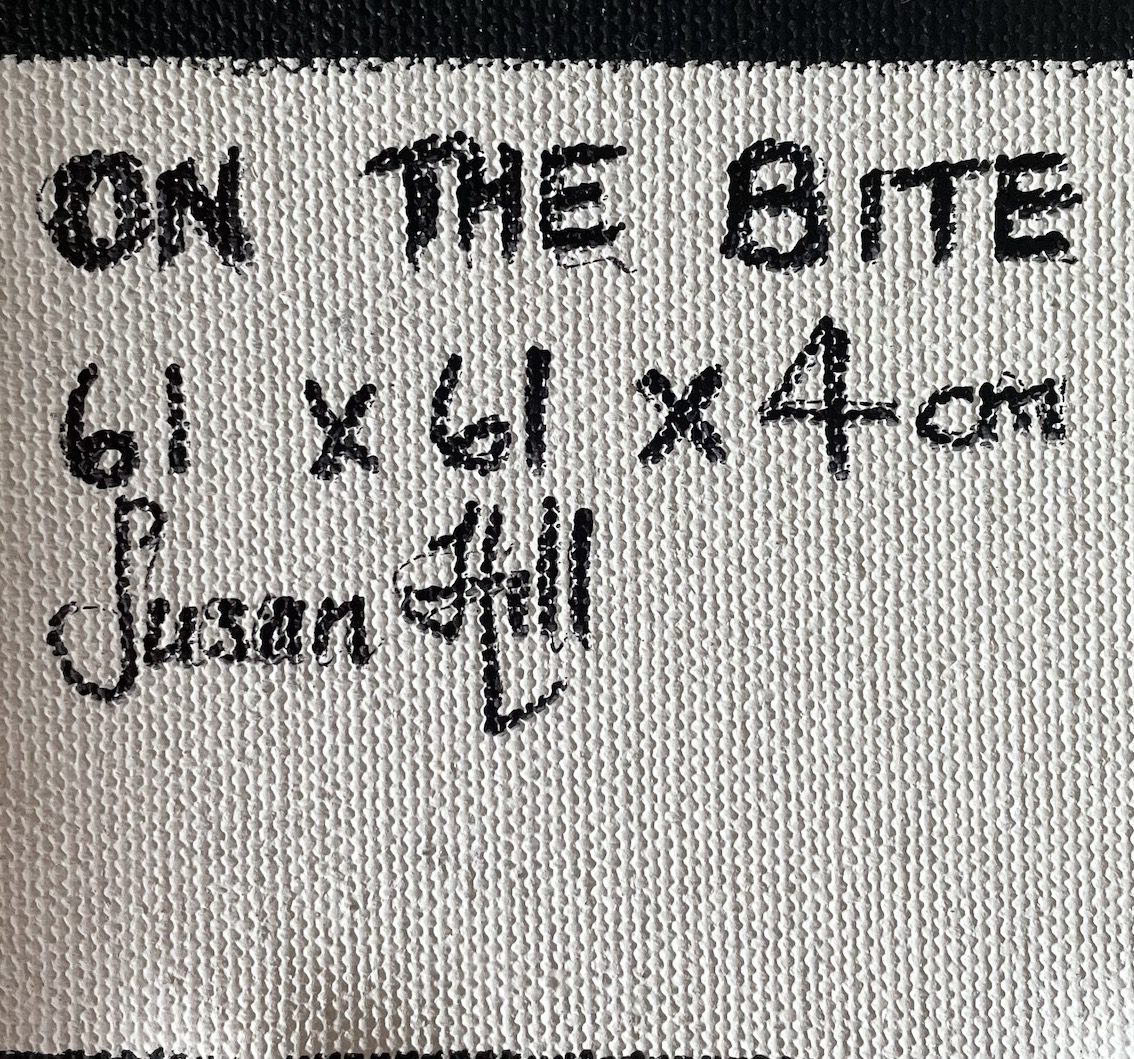 ON THE BITE
61 x 61 x 4 cm
Susan Hill